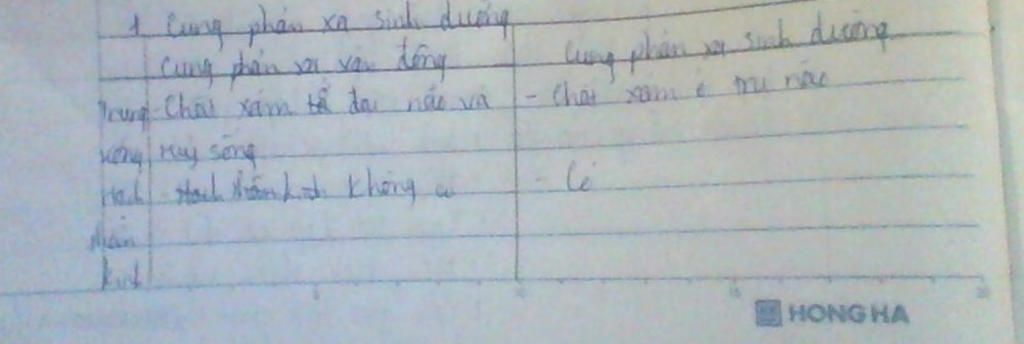 1 Cung phản xạ sinh dưỡng
Cung phản xạ vận động Cung phản xạ sinh dưỡng
Trung Chất xám đại não và - Chất xám ở trụ não
ương tuỷ sống
Hạch Hạch thần kinh không có - Có
thần
kinh
HONG HA